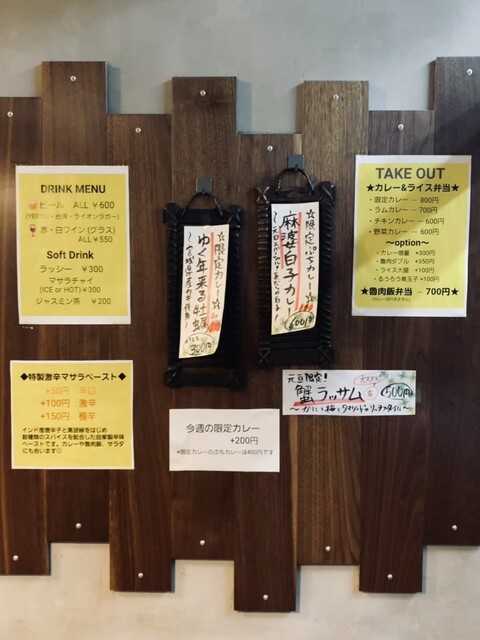 DRINK MENU
ビール ALL ¥600
(YEBISU・台湾・ライオンラガー)
赤・白ワイン (グラス)
ALL ¥550
Soft Drink
ラッシー ¥300
マサラチャイ
(ICE or HOT)¥300
ジャスミン茶 ¥200
◆特製激辛マサラペースト◆
+50円 辛口
+100円 激辛
+150円 極辛
インド産唐辛子と黒胡椒をはじめ
数種類のスパイスを配合した自家製辛味
ペーストです。カレーや魯肉飯、サラダ
にも合います◎
☆限定カレー☆
ゆく年来る牡蠣
〜宮城県産カキ使用〜
300円
☆限定ぷちカレー☆
麻婆白子カレー
600円
今週の限定カレー
+200円
※限定カレーのぷちカレーは400円です
元旦限定!
蟹ラッサム
オススメ
500円
〜かにと梅とタマリンドのスープスタイル〜
TAKE OUT
★カレー&ライス弁当★
・限定カレー … 800円
・ラムカレー … 700円
・チキンカレー … 600円
・野菜カレー … 600円
〜option〜
・カレー増量 +300円
・魯肉ダブル +350円
・ライス大盛 +100円
・るうろう煮玉子 +100円
★魯肉飯弁当 … 700円★
(カレーは付きません)